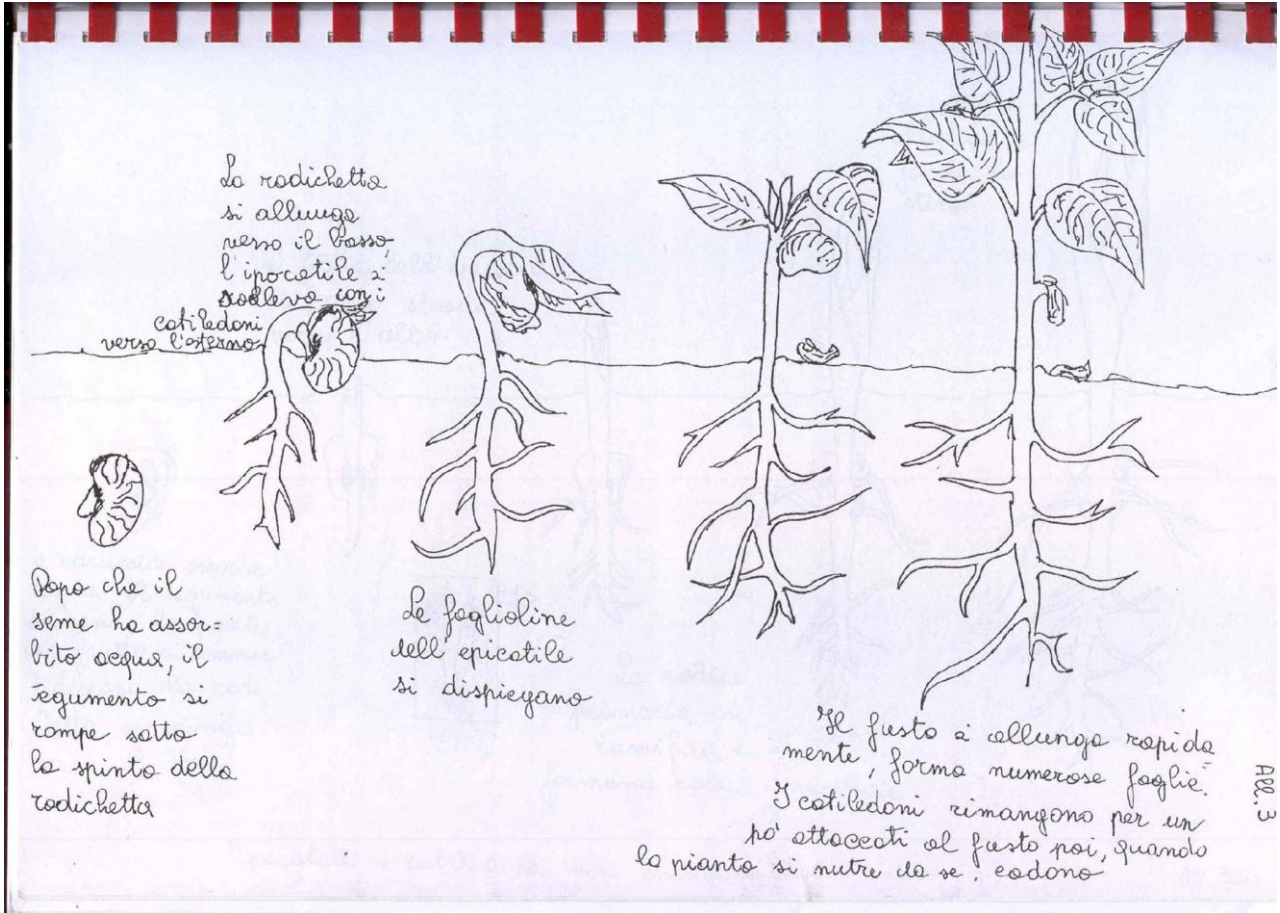 La radichetta
si allunga
verso il basso
l'ipocotile si
solleva con i
cotiledoni
verso l'esterno
Dopo che il
seme ha assor-
bito acqua, il
tegumento si
rompe sotto
la spinta della
radichetta
Le foglioline
dell'epicotile
si dispiegano
Il fusto si allunga rapida=
mente, forma numerose foglie.
I cotiledoni rimangono per un
po' attaccati al fusto poi, quando
la pianta si nutre da se, cadono
All.3